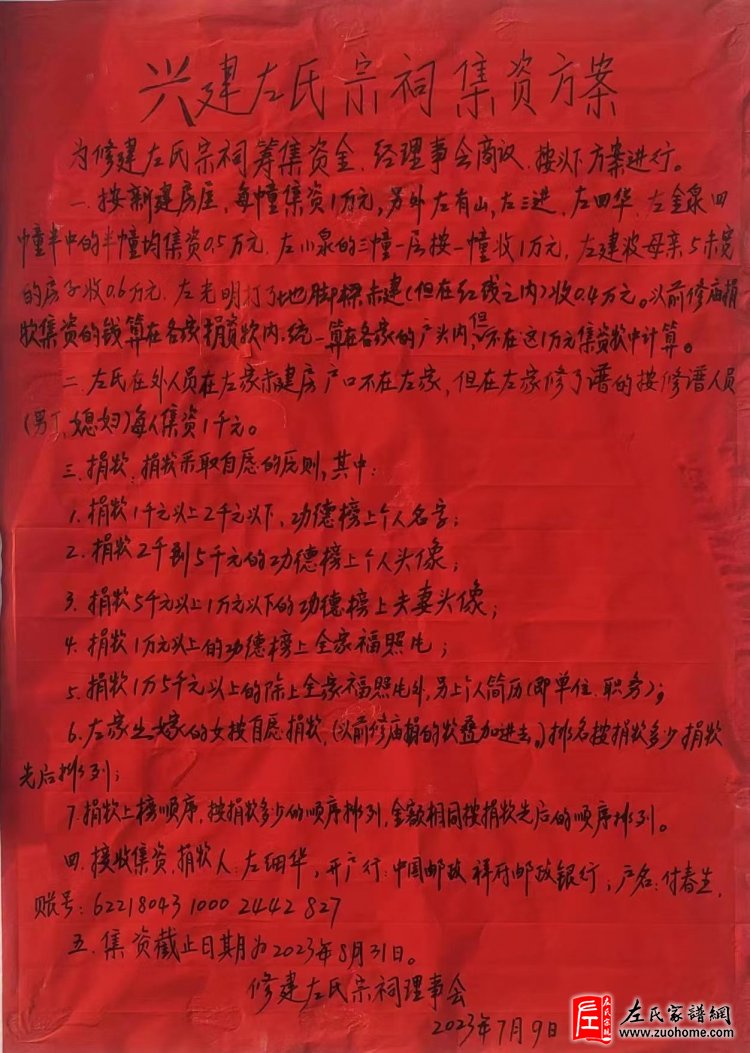 兴建左氏宗祠集资方案
为修建左氏宗祠筹集资金、经理事会商议、按以下方案进行。
一、按新建房屋,每幢集资1万元,另外左有山,左三进、左四华、左金泉四
幢半中的半幢均集资0.5万元、左小泉的三幢一层按一幢收1万元,左建波母亲5米宽
的房子收0.6万元、左光明打了地脚梁未建(但在红线之内)收0.4万元。以前修庙捐
款集资的钱算在各家捐款内、统一算在各家的户头内,但不在这1万元集资款中计算。
二、左氏在外人员在左家未建房户口不在左家,但在左家修了谱的按修谱人员
(男丁、媳妇)每人集资1千元。
三、捐款、捐款采取自愿的原则,其中:
1.捐款1千元以上2千元以下,功德榜上个人名字;
2.捐款2千到5千元的功德榜上个人头像;
3.捐款5千元以上1万元以下的功德榜上夫妻头像;
4.捐款1万元以上的功德榜上全家福照片;
5.捐款1万5千元以上的除上全家福照片外,另上个人简历(即单位、职务);
6.左家出嫁的女按自愿捐款,(以前修庙捐的款叠加进去。)排名按捐款多少捐款
先后排列;
7.捐款上榜顺序,按捐款多少的顺序排列,金额相同按捐款先后的顺序排列。
四、接收集资、捐款人:左细华,开户行:中国邮政祥府邮政银行;户名:付春生,
账号:62218043 1000 2442 827
五、集资截止日期为2023年8月31日。
修建左氏宗祠理事会
2023年7月9日
左氏家譜網
www.zuohome.com